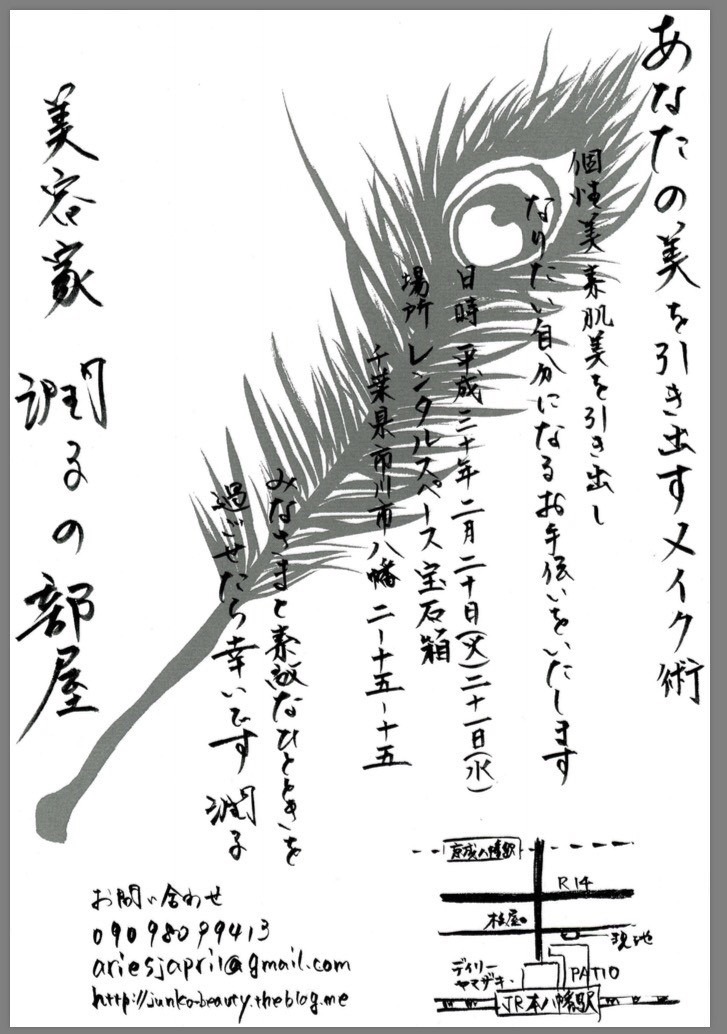 あなたの美を引き出すメイク術
個性美 素肌美を引き出し
なりたい自分になるお手伝いをいたします
日時 平成三十年二月二十日(火)二十一日(水)
場所 レンタルスペース宝石箱
千葉県市川市八幡二ー十五ー十五
みなさまと素敵なひとときを
過ごせたら幸いです 潤る
美容家 潤るの部屋
お問い合わせ
09098099413
ariesjapril@gmail.com
http://junko-beauty.theblog.me
京成八幡駅
R14
現地
デイリー
ヤマザキ
PATIO
JR本八幡駅